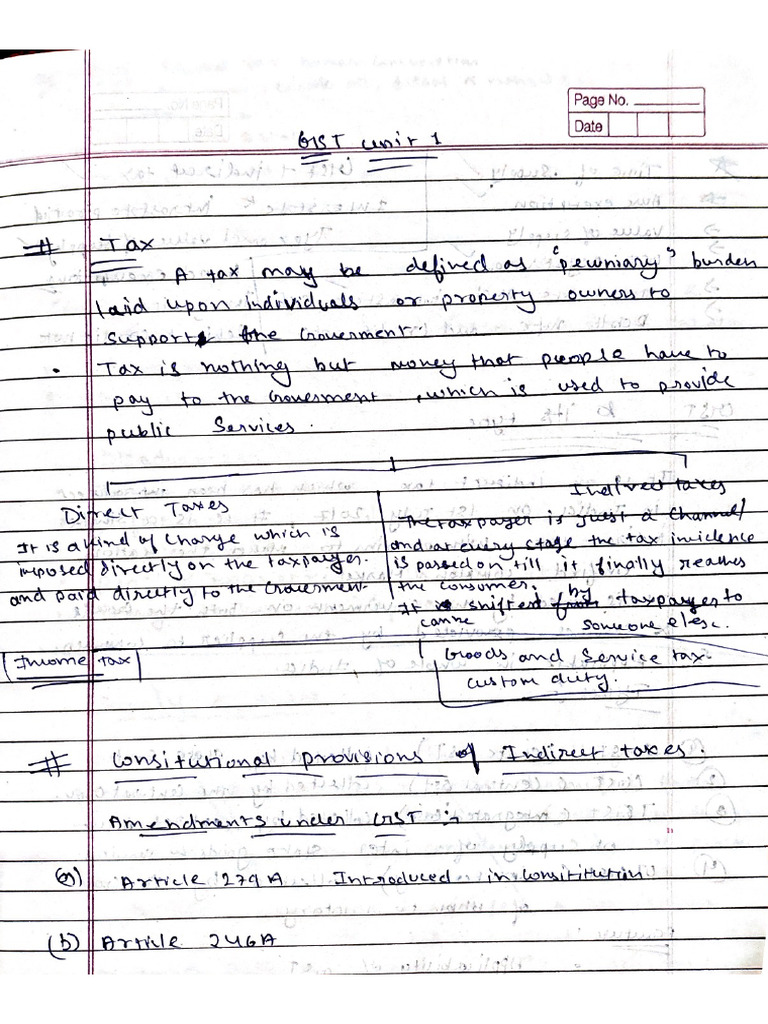 Page No.
Date
GST Unit 1
# Tax
A tax may be defined as "pewniary" burden
laid upon individuals or property owners to
support the Goverment.
• Tax is nothing but money that people have to
pay to the Government, which is used to provide
public Services.
Direct Taxes
It is a kind of Charge which is
imposed directly on the taxpayer.
and paid directly to the Goverment
Income tax
Indirect taxes
The taxpayer is just a channel
and at every stage the tax incidence
is passed on till it finally reaches
the consumer.
It can be shifted by taxpayer to
someone else.
Goods and Service tax.
custom duty.
# Consitutional provisions of Indirect taxes.
Amendments under GST :-
(a) Article 279A Introduced in Consititution
(b) Article 246A